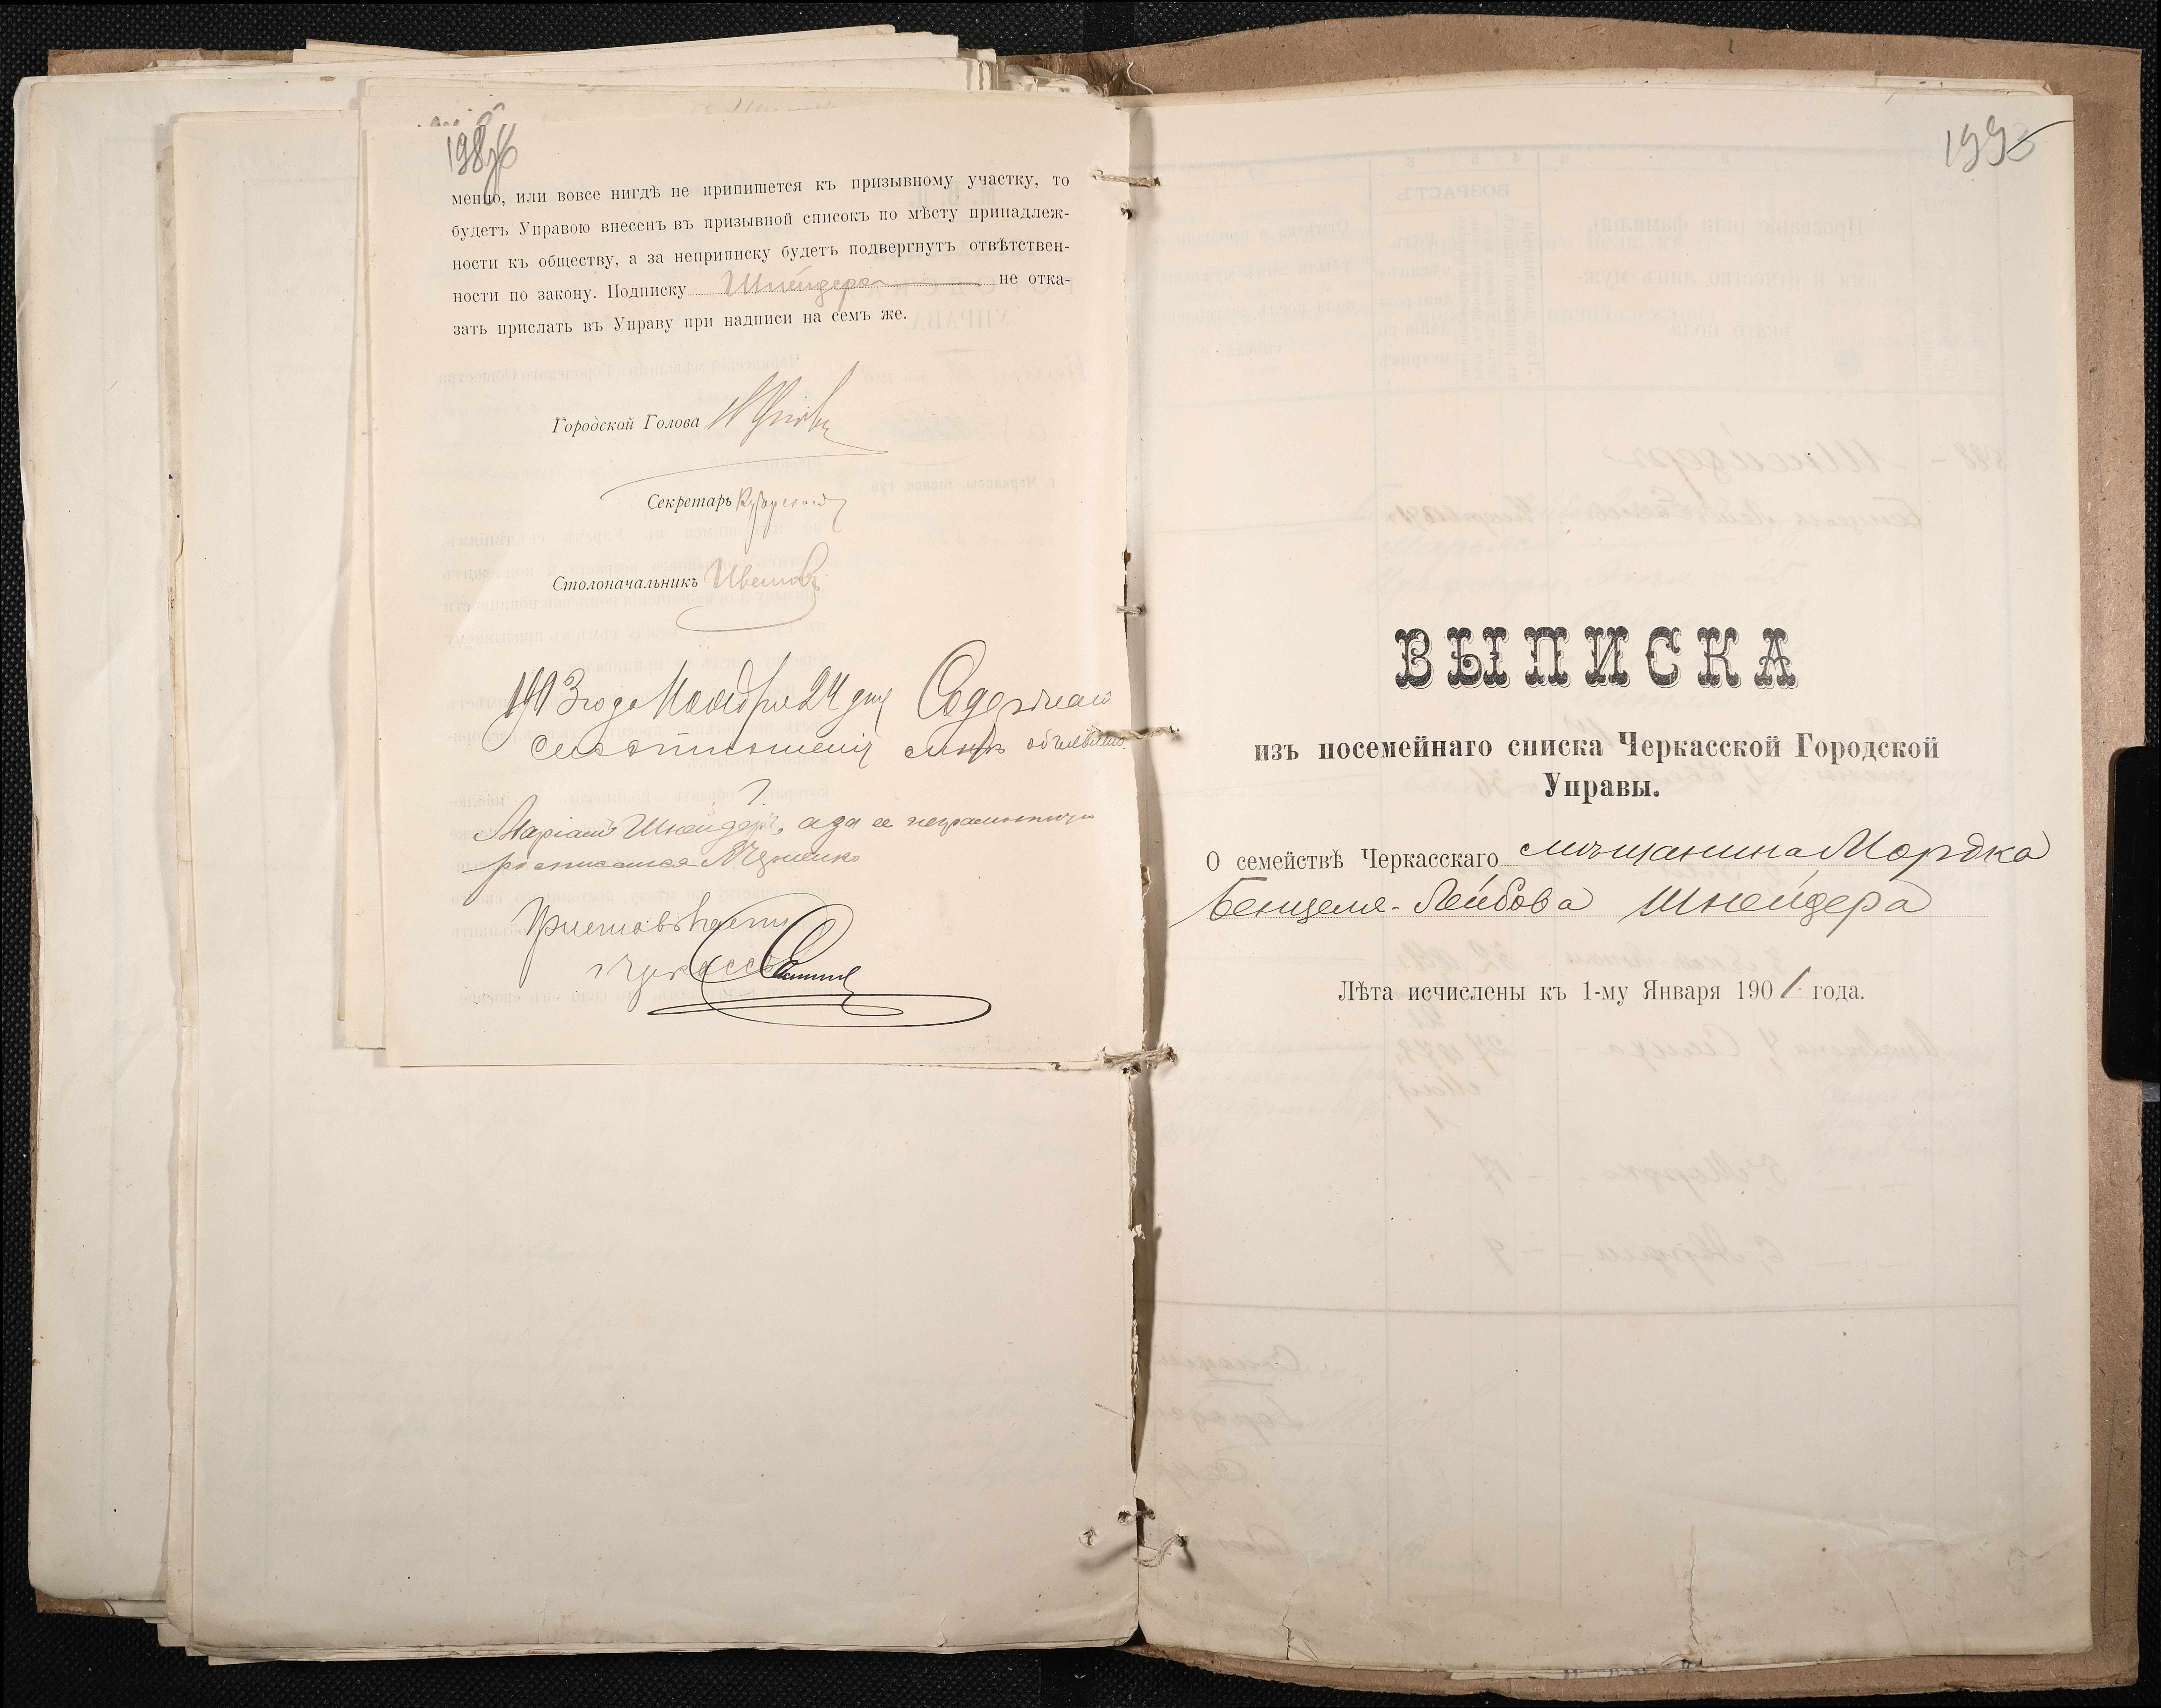 198
менно, или вовсе нигдѣ не припишется къ призывному участку, то
будетъ Управою внесенъ въ призывной списокъ по мѣсту принадлеж-
ности къ обществу, а за неприписку будетъ подвергнутъ отвѣтствен-
ности по закону. Подписку Шнейдера не отка-
зать прислать въ Управу при надписи на семъ же.
Городской Голова
Секретарь
Столоначальникъ
1913 года Ноября 24 дня Содержаніе
сего отношенія мнѣ объявлено.
Маріамъ Шнейдеръ, а за ее неграмотную
росписался
Приставъ части
г. Черкассъ
199
ВЫПИСКА
изъ посемейнаго списка Черкасской Городской
Управы.
О семействѣ Черкасскаго мѣщанина Мордка
Бенцеля-Лейбова Шнейдера
Лѣта исчислены къ 1-му Января 1901 года.